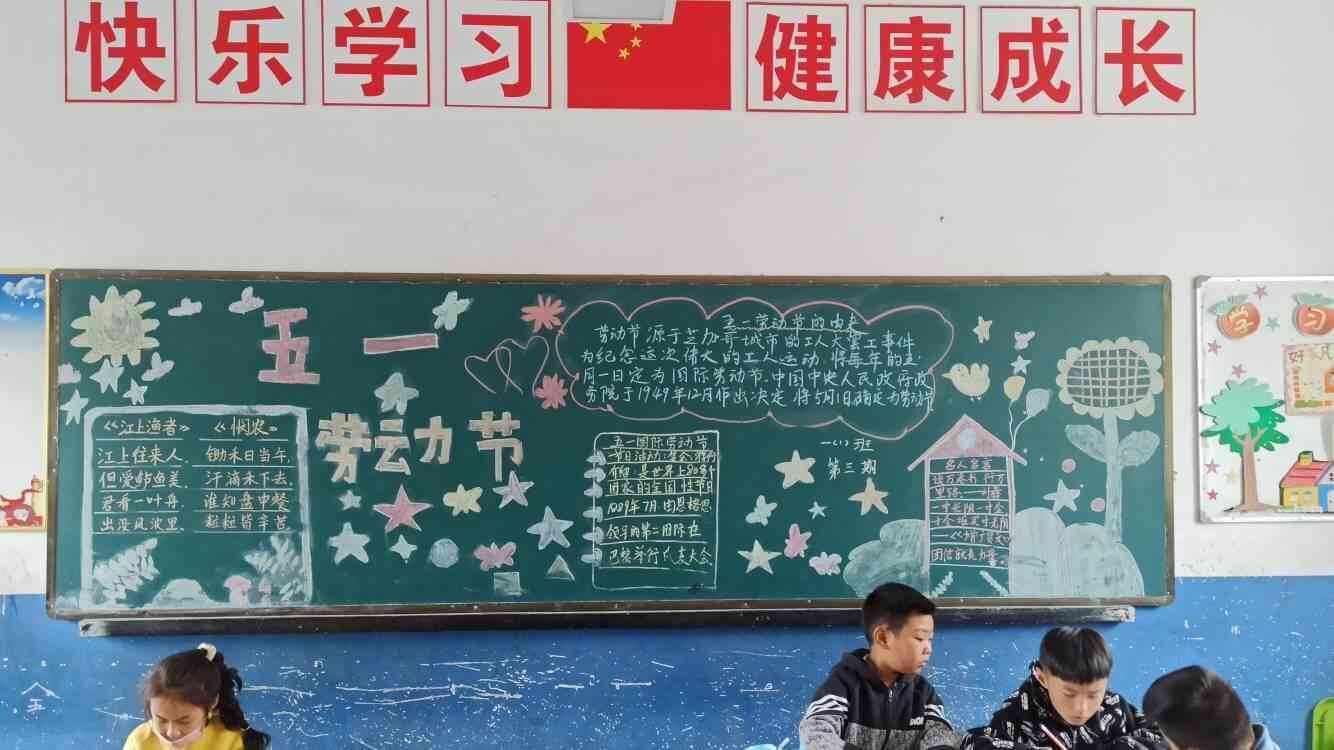 快乐学习 健康成长
五一
劳动节
《江上渔者》
江上往来人,
但爱鲈鱼美,
君看一叶舟,
出没风波里.
《悯农》
锄禾日当午,
汗滴禾下去,
谁知盘中餐
粒粒皆辛苦
五一劳动节的由来
劳动节源于芝加哥城市的工人大罢工事件
为纪念这次伟大的工人运动,将每年的五
月一日定为国际劳动节.中国中央人民政府政
务院于1949年12月作出决定,将5月1日确定为劳动节
五一国际劳动节
是世界上80多个
国家的全国性节日
1889年7月由恩格思
领导的第二国际在
巴黎举行代表大会
一(1)班
第三期
名人名言
读万卷书 行万
里路
一寸光阴一寸金
寸金难买寸光阴
团结就是力量.
学习